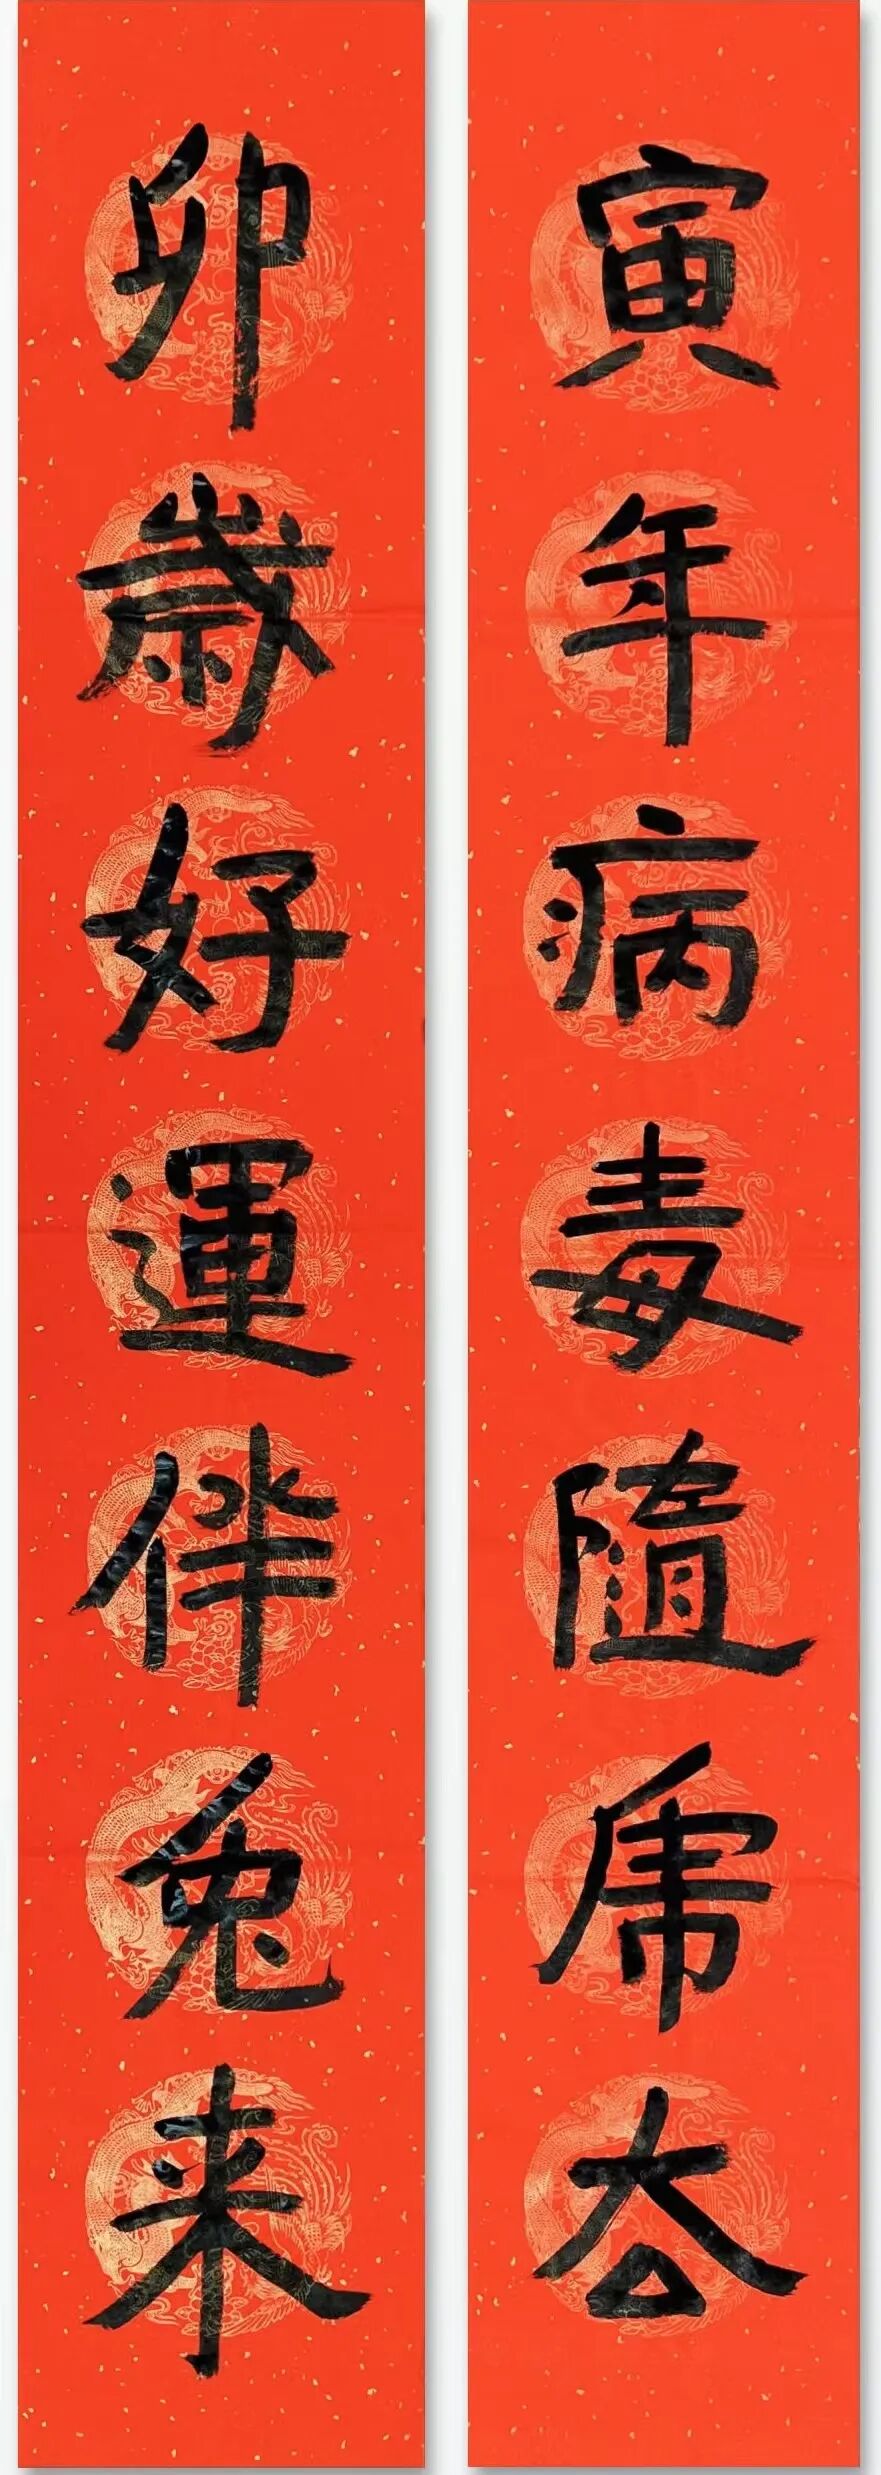 寅年病毒隨虎去
卯歲好運伴兔来